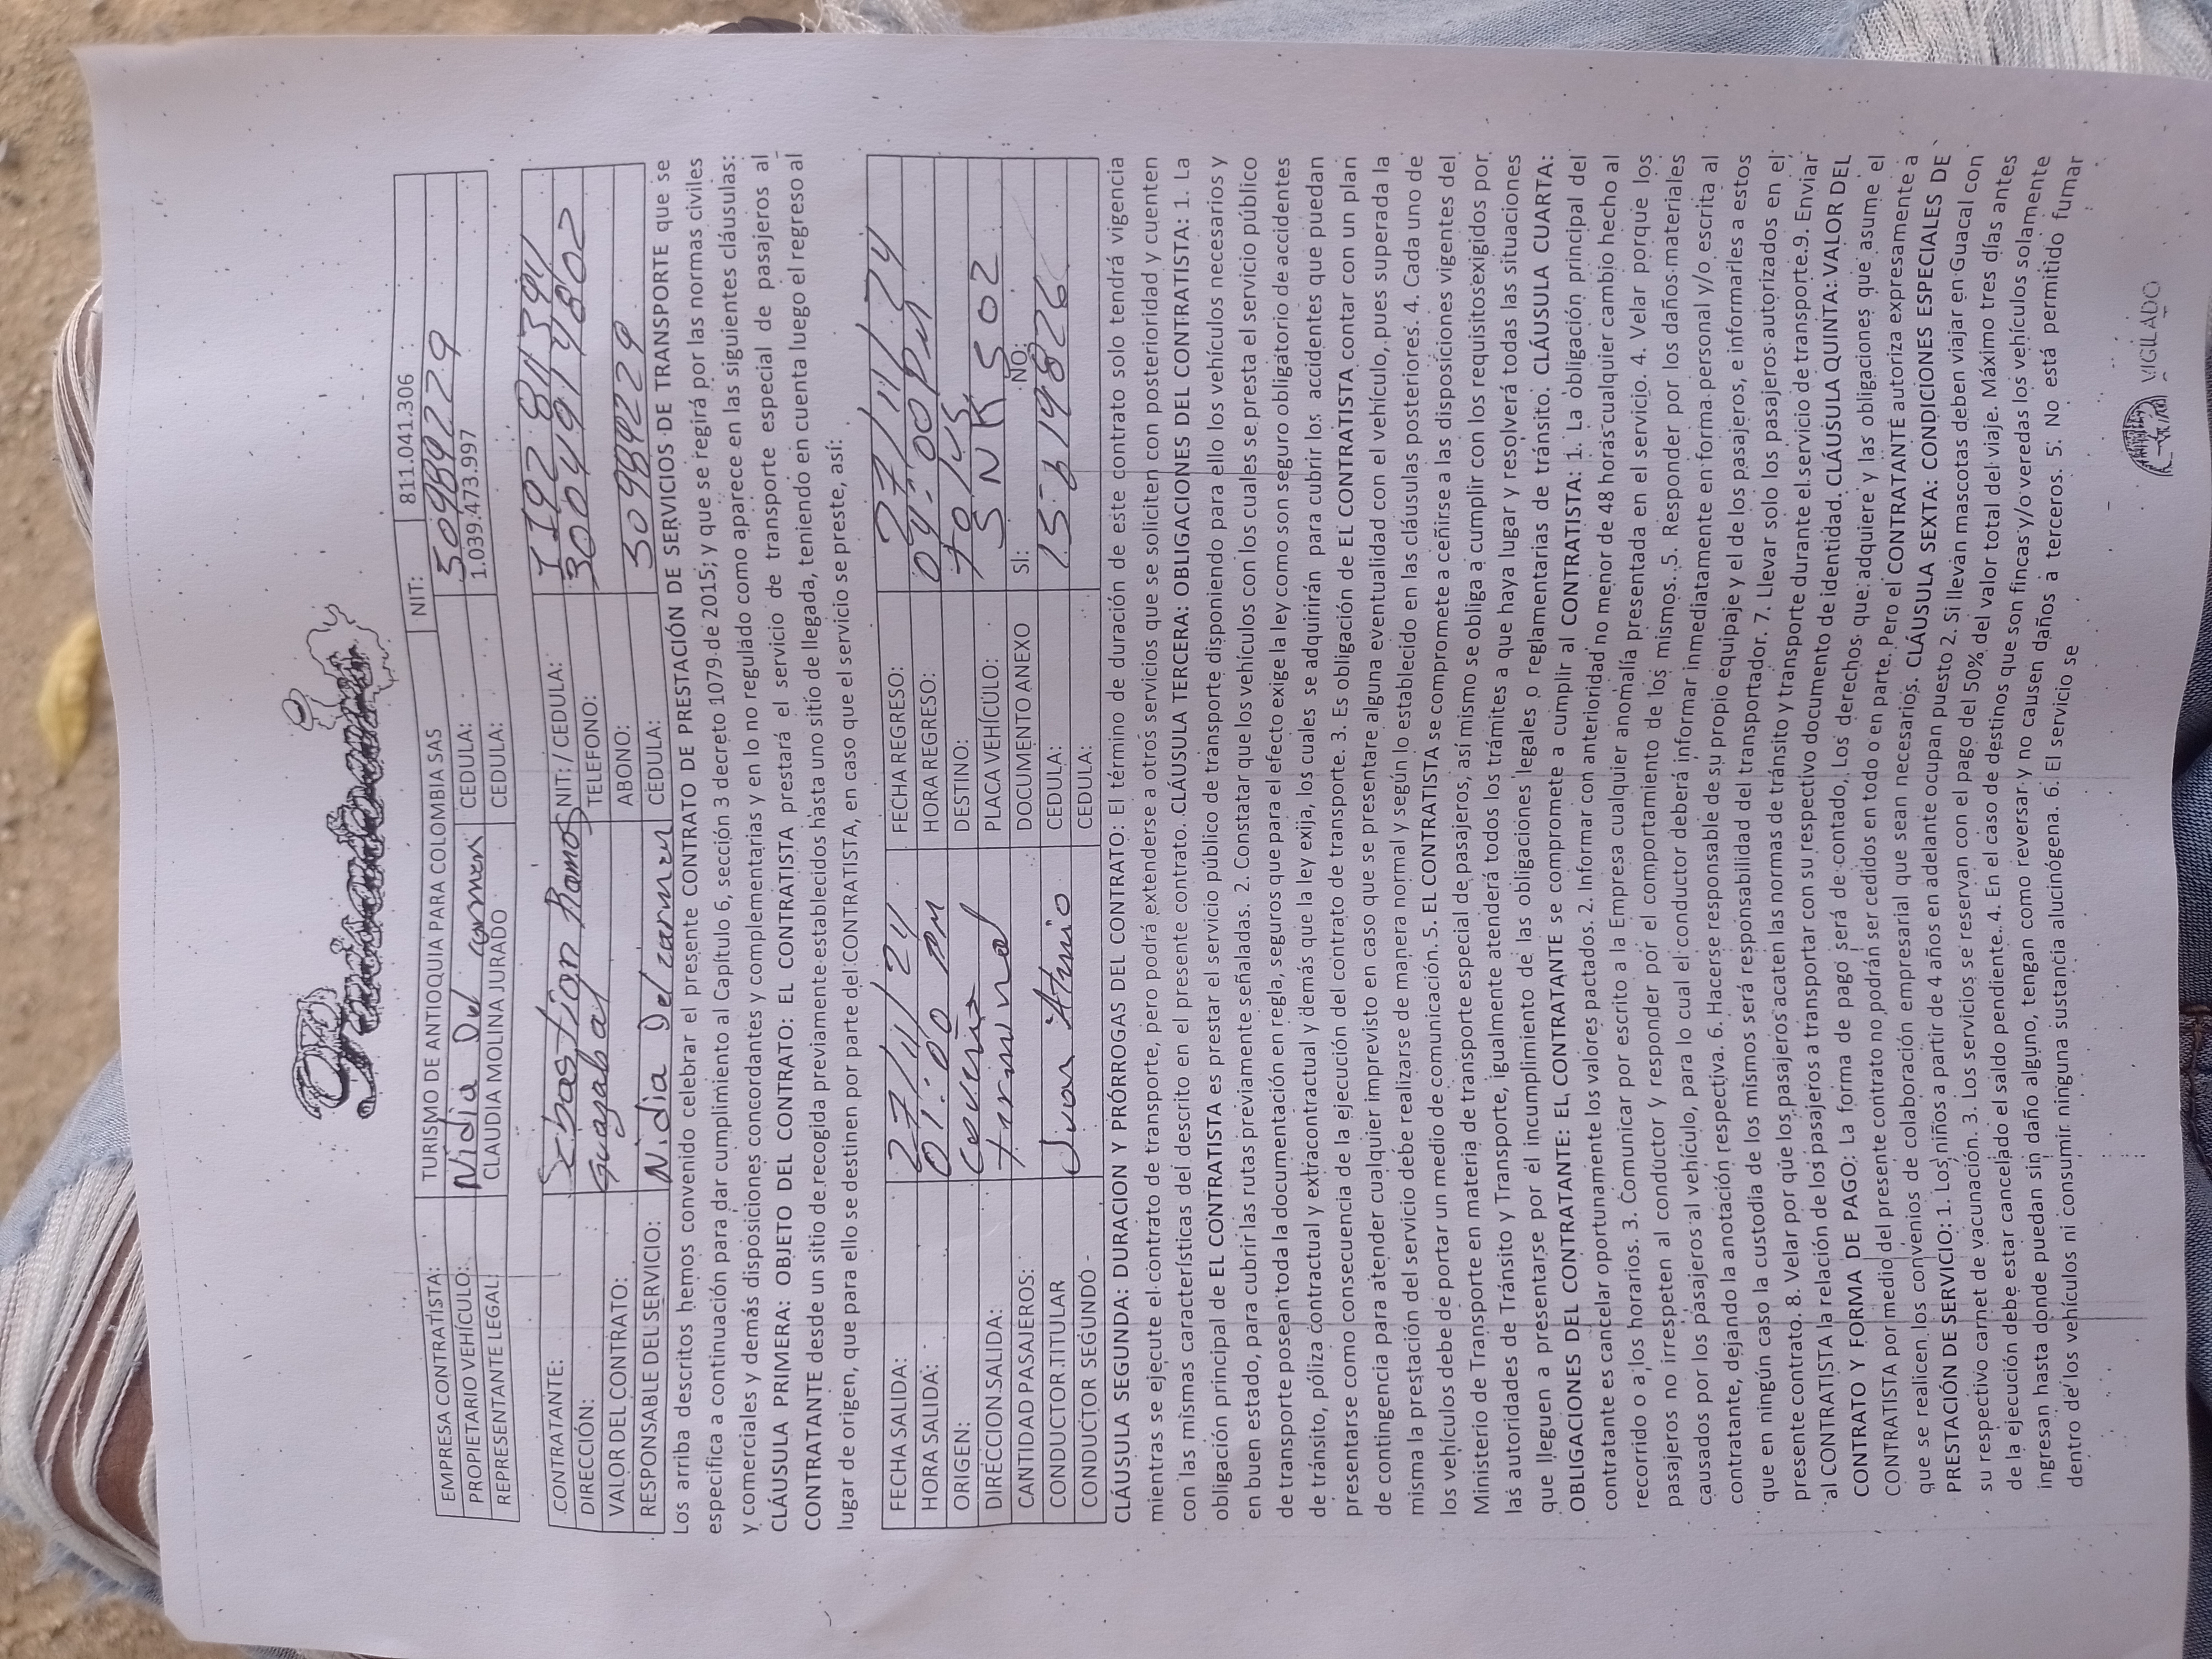 EMPRESA CONTRATISTA: TURISMO DE ANTIOQUIA PARA COLOMBIA SAS NIT: 811.041.306
PROPIETARIO VEHÍCULO: Nidia Del carmen CEDULA: 30989229
REPRESENTANTE LEGAL: CLAUDIA MOLINA JURADO CEDULA: 1.039.473.997
CONTRATANTE: Sebastian Ramos NIT: / CEDULA:
DIRECCIÓN: Guayabal TELEFONO: 3004914802
VALOR DEL CONTRATO: ABONO:
RESPONSABLE DEL SERVICIO: Nidia Del carmen CEDULA: 30989229
Los arriba descritos hemos convenido celebrar el presente CONTRATO DE PRESTACIÓN DE SERVICIOS DE TRANSPORTE que se
especifica a continuación para dar cumplimiento al Capítulo 6, sección 3 decreto 1079 de 2015; y que se regirá por las normas civiles
y comerciales y demás disposiciones concordantes y complementarias y en lo no regulado como aparece en las siguientes cláusulas:
CLÁUSULA PRIMERA: OBJETO DEL CONTRATO: EL CONTRATISTA prestará el servicio de transporte especial de pasajeros al
CONTRATANTE desde un sitio de recogida previamente establecidos hasta uno sitio de llegada, teniendo en cuenta luego el regreso al
lugar de origen, que para ello se destinen por parte del CONTRATISTA, en caso que el servicio se preste, así:
FECHA SALIDA: 27/11/24 FECHA REGRESO: 27/11/24
HORA SALIDA: 01:00 PM HORA REGRESO: 04:00 PM
ORIGEN: DESTINO: Tolus
DIRECCION SALIDA: terminal PLACA VEHÍCULO: SNK502
CANTIDAD PASAJEROS: DOCUMENTO ANEXO SI: NO:
CONDUCTOR TITULAR CEDULA:
CONDUCTOR SEGUNDO CEDULA:
CLÁUSULA SEGUNDA: DURACION Y PRÓRROGAS DEL CONTRATO: El término de duración de este contrato solo tendrá vigencia
mientras se ejecute el contrato de transporte, pero podrá extenderse a otros servicios que se soliciten con posterioridad y cuenten
con las mismas características del descrito en el presente contrato. CLÁUSULA TERCERA: OBLIGACIONES DEL CONTRATISTA: 1. La
obligación principal de EL CONTRATISTA es prestar el servicio público de transporte disponiendo para ello los vehículos necesarios y
en buen estado, para cubrir las rutas previamente señaladas. 2. Constatar que los vehículos con los cuales se presta el servicio público
de transporte posean toda la documentación en regla, seguros que para el efecto exige la ley como son seguro obligatorio de accidentes
de tránsito, póliza contractual y extracontractual y demás que la ley exija, los cuales se adquirirán para cubrir los accidentes que puedan
presentarse como consecuencia de la ejecución del contrato de transporte. 3. Es obligación de EL CONTRATISTA contar con un plan
de contingencia para atender cualquier imprevisto en caso que se presentare alguna eventualidad con el vehículo, pues superada la
misma la prestación del servicio debe realizarse de manera normal y según lo establecido en las cláusulas posteriores. 4. Cada uno de
los vehículos debe de portar un medio de comunicación. 5. EL CONTRATISTA se compromete a ceñirse a las disposiciones vigentes del
Ministerio de Transporte en materia de transporte especial de pasajeros, así mismo se obliga a cumplir con los requisitosexigidos por
las autoridades de Tránsito y Transporte, igualmente atenderá todos los trámites a que haya lugar y resolverá todas las situaciones
que lleguen a presentarse por el incumplimiento de las obligaciones legales o reglamentarias de tránsito. CLÁUSULA CUARTA:
OBLIGACIONES DEL CONTRATANTE: EL CONTRATANTE se compromete a cumplir al CONTRATISTA: 1. La obligación principal del
contratante es cancelar oportunamente los valores pactados. 2. Informar con anterioridad no menor de 48 horas cualquier cambio hecho al
recorrido o a los horarios. 3. Comunicar por escrito a la Empresa cualquier anomalía presentada en el servicio. 4. Velar porque los
pasajeros no irrespeten al conductor y responder por el comportamiento de los mismos. 5. Responder por los daños materiales
causados por los pasajeros al vehículo, para lo cual el conductor deberá informar inmediatamente en forma personal y/o escrita al
contratante, dejando la anotación respectiva. 6. Hacerse responsable de su propio equipaje y el de los pasajeros, e informarles a estos
que en ningún caso la custodia de los mismos será responsabilidad del transportador. 7. Llevar solo los pasajeros autorizados en el
presente contrato. 8. Velar por que los pasajeros acaten las normas de tránsito y transporte durante el servicio de transporte.9. Enviar
al CONTRATISTA la relación de los pasajeros a transportar con su respectivo documento de identidad. CLÁUSULA QUINTA: VALOR DEL
CONTRATO Y FORMA DE PAGO: La forma de pago será de contado, Los derechos que adquiere y las obligaciones que asume el
CONTRATISTA por medio del presente contrato no podrán ser cedidos en todo o en parte. Pero el CONTRATANTE autoriza expresamente a
que se realicen los convenios de colaboración empresarial que sean necesarios. CLÁUSULA SEXTA: CONDICIONES ESPECIALES DE
PRESTACIÓN DE SERVICIO: 1. Los niños a partir de 4 años en adelante ocupan puesto 2. Si llevan mascotas deben viajar en Guacal con
su respectivo carnet de vacunación. 3. Los servicios se reservan con el pago del 50% del valor total del viaje. Máximo tres días antes
de la ejecución debe estar cancelado el saldo pendiente. 4. En el caso de destinos que son fincas y/o veredas los vehículos solamente
ingresan hasta donde puedan sin daño alguno, tengan como reversar y no causen daños a terceros. 5. No está permitido fumar
dentro de los vehículos ni consumir ninguna sustancia alucinógena. 6. El servicio se
VIGILADO